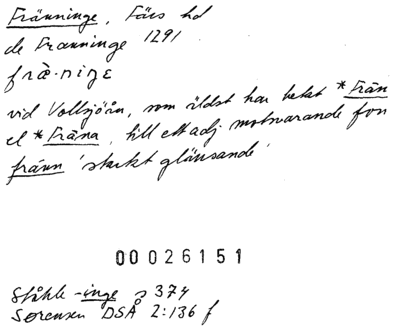 Fränninge, Färs hd
de Fræninge 1291
frä̀·niŋɛ
vid Vollsjöån, som äldst har hetat *Frän
el *Fräna, till ett adj motsvarande fvn
fránn 'starkt glänsande'
00026151
Ståhle -inge s 374
Sørensen DSÅ 2:136 f